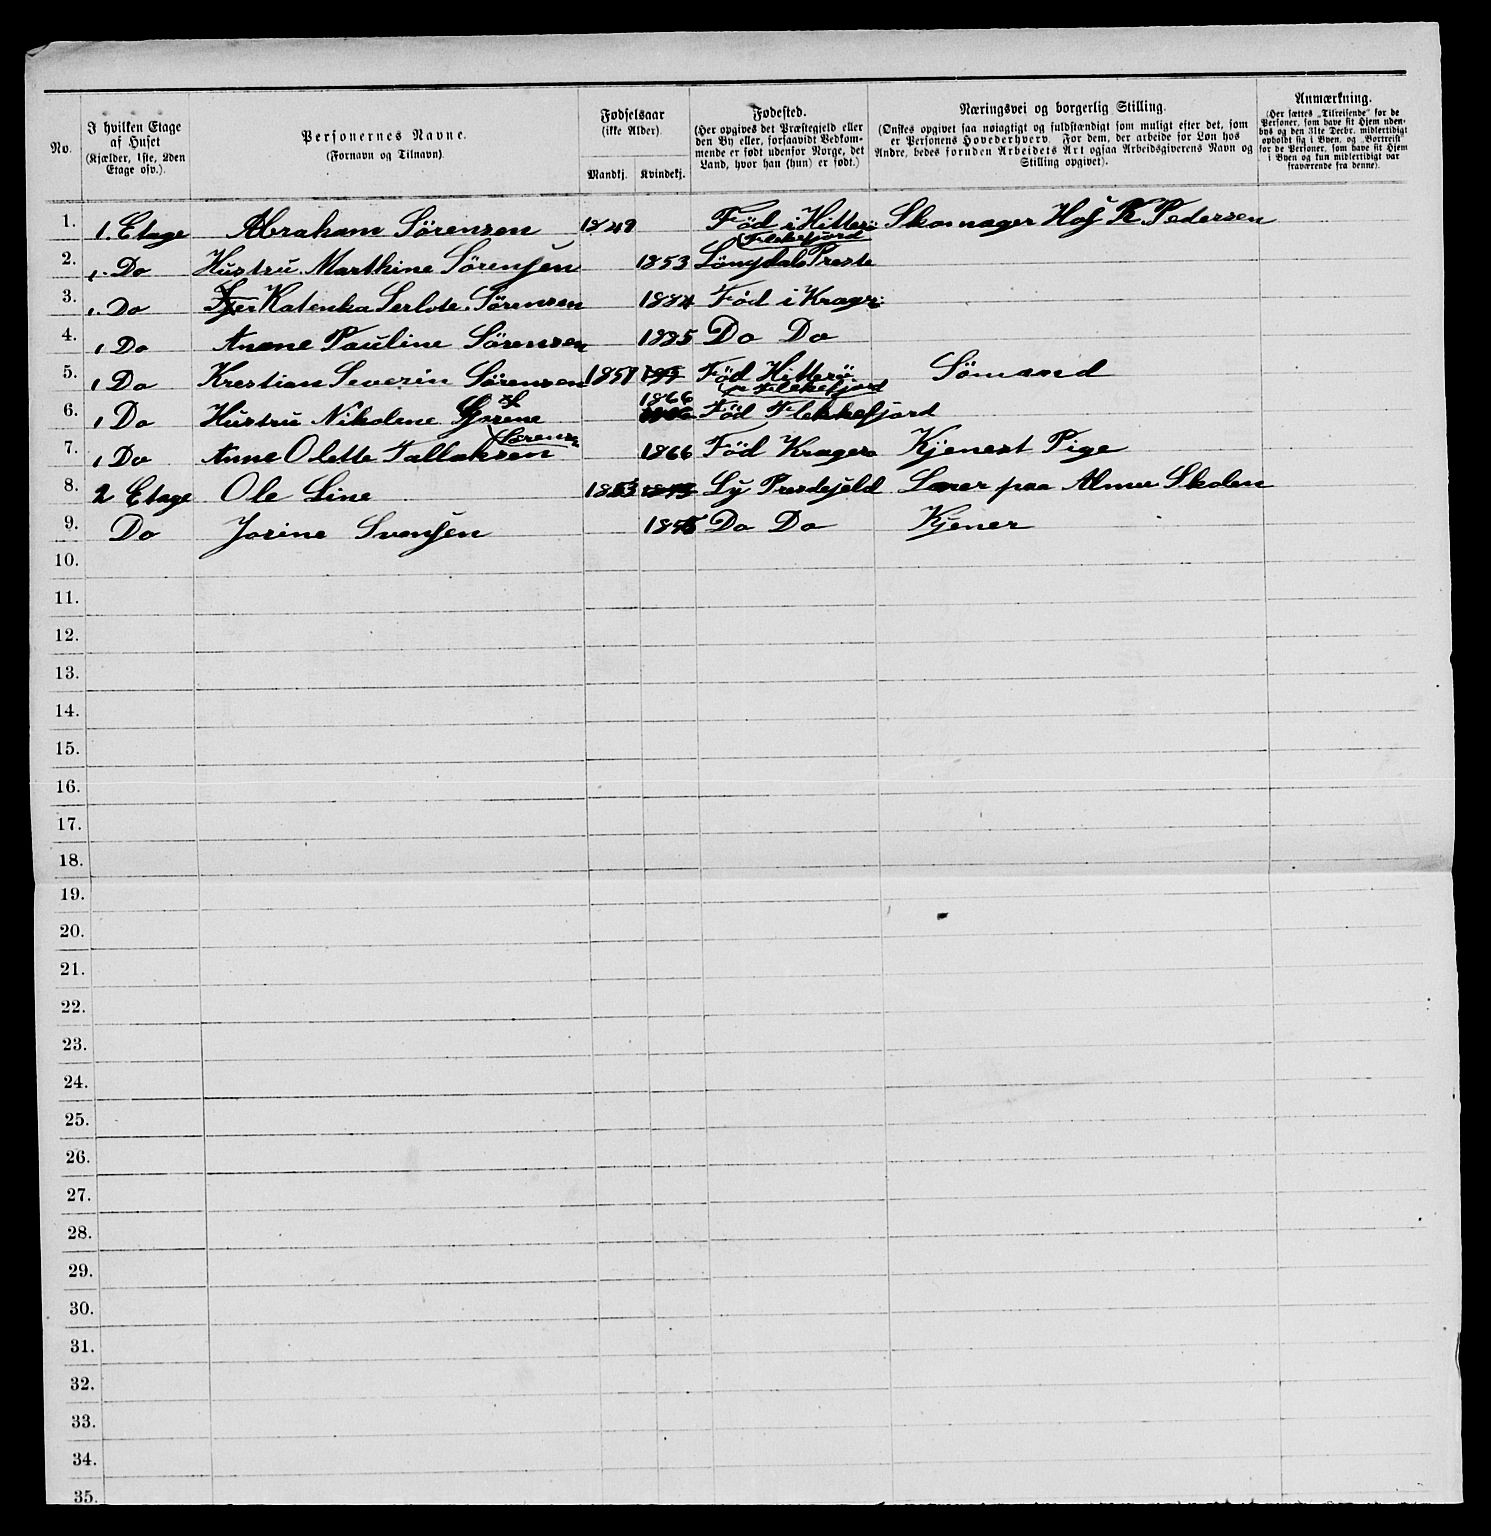 No.
I hvilken Etage af Huset
(Kjælder, 1ste, 2den Etage osv.).
Personernes Navne.
(Fornavn og Tilnavn)
Fødselsaar
(ikke Alder).
Mandkj. Kvindekj.
Fødested.
(Her opgives det Præstegjeld eller
den By eller, forsaavidt Vedkom-
mende er født udenfor Norge, det
Land, hvor han (hun) er født.)
Næringsvei og borgerlig Stilling.
(Ønskes opgivet saa nøiagtigt og fuldstændigt som muligt efter det, som
er Personens Hovederhverv. For dem, der arbeide for Løn hos
Andre, bedes foruden Arbeidets Art ogsaa Arbeidsgiverens Navn og
Stilling opgivet).
Anmærkning.
(Her sættes „Tilreisende" for de
Personer, som have sit Hjem uden-
bys og den 31te Decbr. midlertidigt
opholdt sig i Byen, og „Bortreist"
for de Personer, som have sit Hjem
i Byen og kun midlertidigt var
fraværende fra denne).
1. 1. Etage Abraham Sörensen 1849 Föd i Hitterö Skomager Hos R Pedersen
Flekefjord
2. 1. Do Hustru Marthine Sörensen 1853 Löngdals Preste
3. 1. Do Katenka Serlote Sörensen 1884 Föd i Kragerö
4. 1 Do Anne Pauline Sörensen 1885 Do Do
5. 1 Do Krestian Severin Sörensen 1857 Föd Hitterö Sömand
pr Flekefjord
6. 1 Do Hustru Nikoline Sörensen 1866 Föd Flekkefjord
7. 1 Do Anne Olette Tallaksen 1866 Föd Kragerø Kjenest Pige
8. 2 Etage Ole Line 1853 Ly Presdejeld Lærer paa Almue Skolen
9. Do Josine Svensen 1845 Do Do Kjener
10.
11.
12.
13.
14.
15.
16.
17.
18.
19.
20.
21.
22.
23.
24.
25.
26.
27.
28.
29.
30.
31.
32.
33.
34.
35.